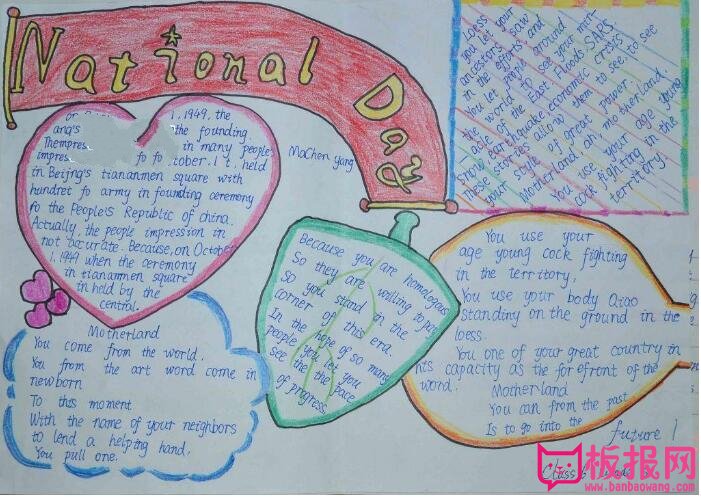 National Day
1, 1949, the
ang's the founding
Thempres in many people
impres fo fo tober. 1 t. held
in Beijng's tiananmen square with
hundret fo army in founding ceremony
fo the People's Republic of china.
Actually, the people impression in
not accurate. Because, on October
1, 1949 when the ceremony
in tiananmen square
in held by the
central.
MaChen yang
Loess
you let your
ancestors saw
in the efforts, and
you let people around
the world to see your merit
able of the East. Floods SARS.
Snow earthquake economic crisis
These stories allow them to see, to see
your style of great power.
Motherland ah, motherland!
You use your age young
cock fighting in the
territory.
Because you are homologous
So they are willing to pay
So you stand in the
corner of this era.
In the hope of so many
people you let you
see the the pace
of progress.
You use your
age young cock fighting
in the territory,
You use your body Qiao
standing on the ground in the
loess.
You one of your great country in
his capacity as the forefront of the
word. Motherland
You can from the past
Is to go into the
future!
Motherland
You come from the world.
You from the art word come in
newborn
To this moment
With the name of your neighbors
to lend a helping hand.
You pull one.
Class 6
板报网
www.banbaowang.com